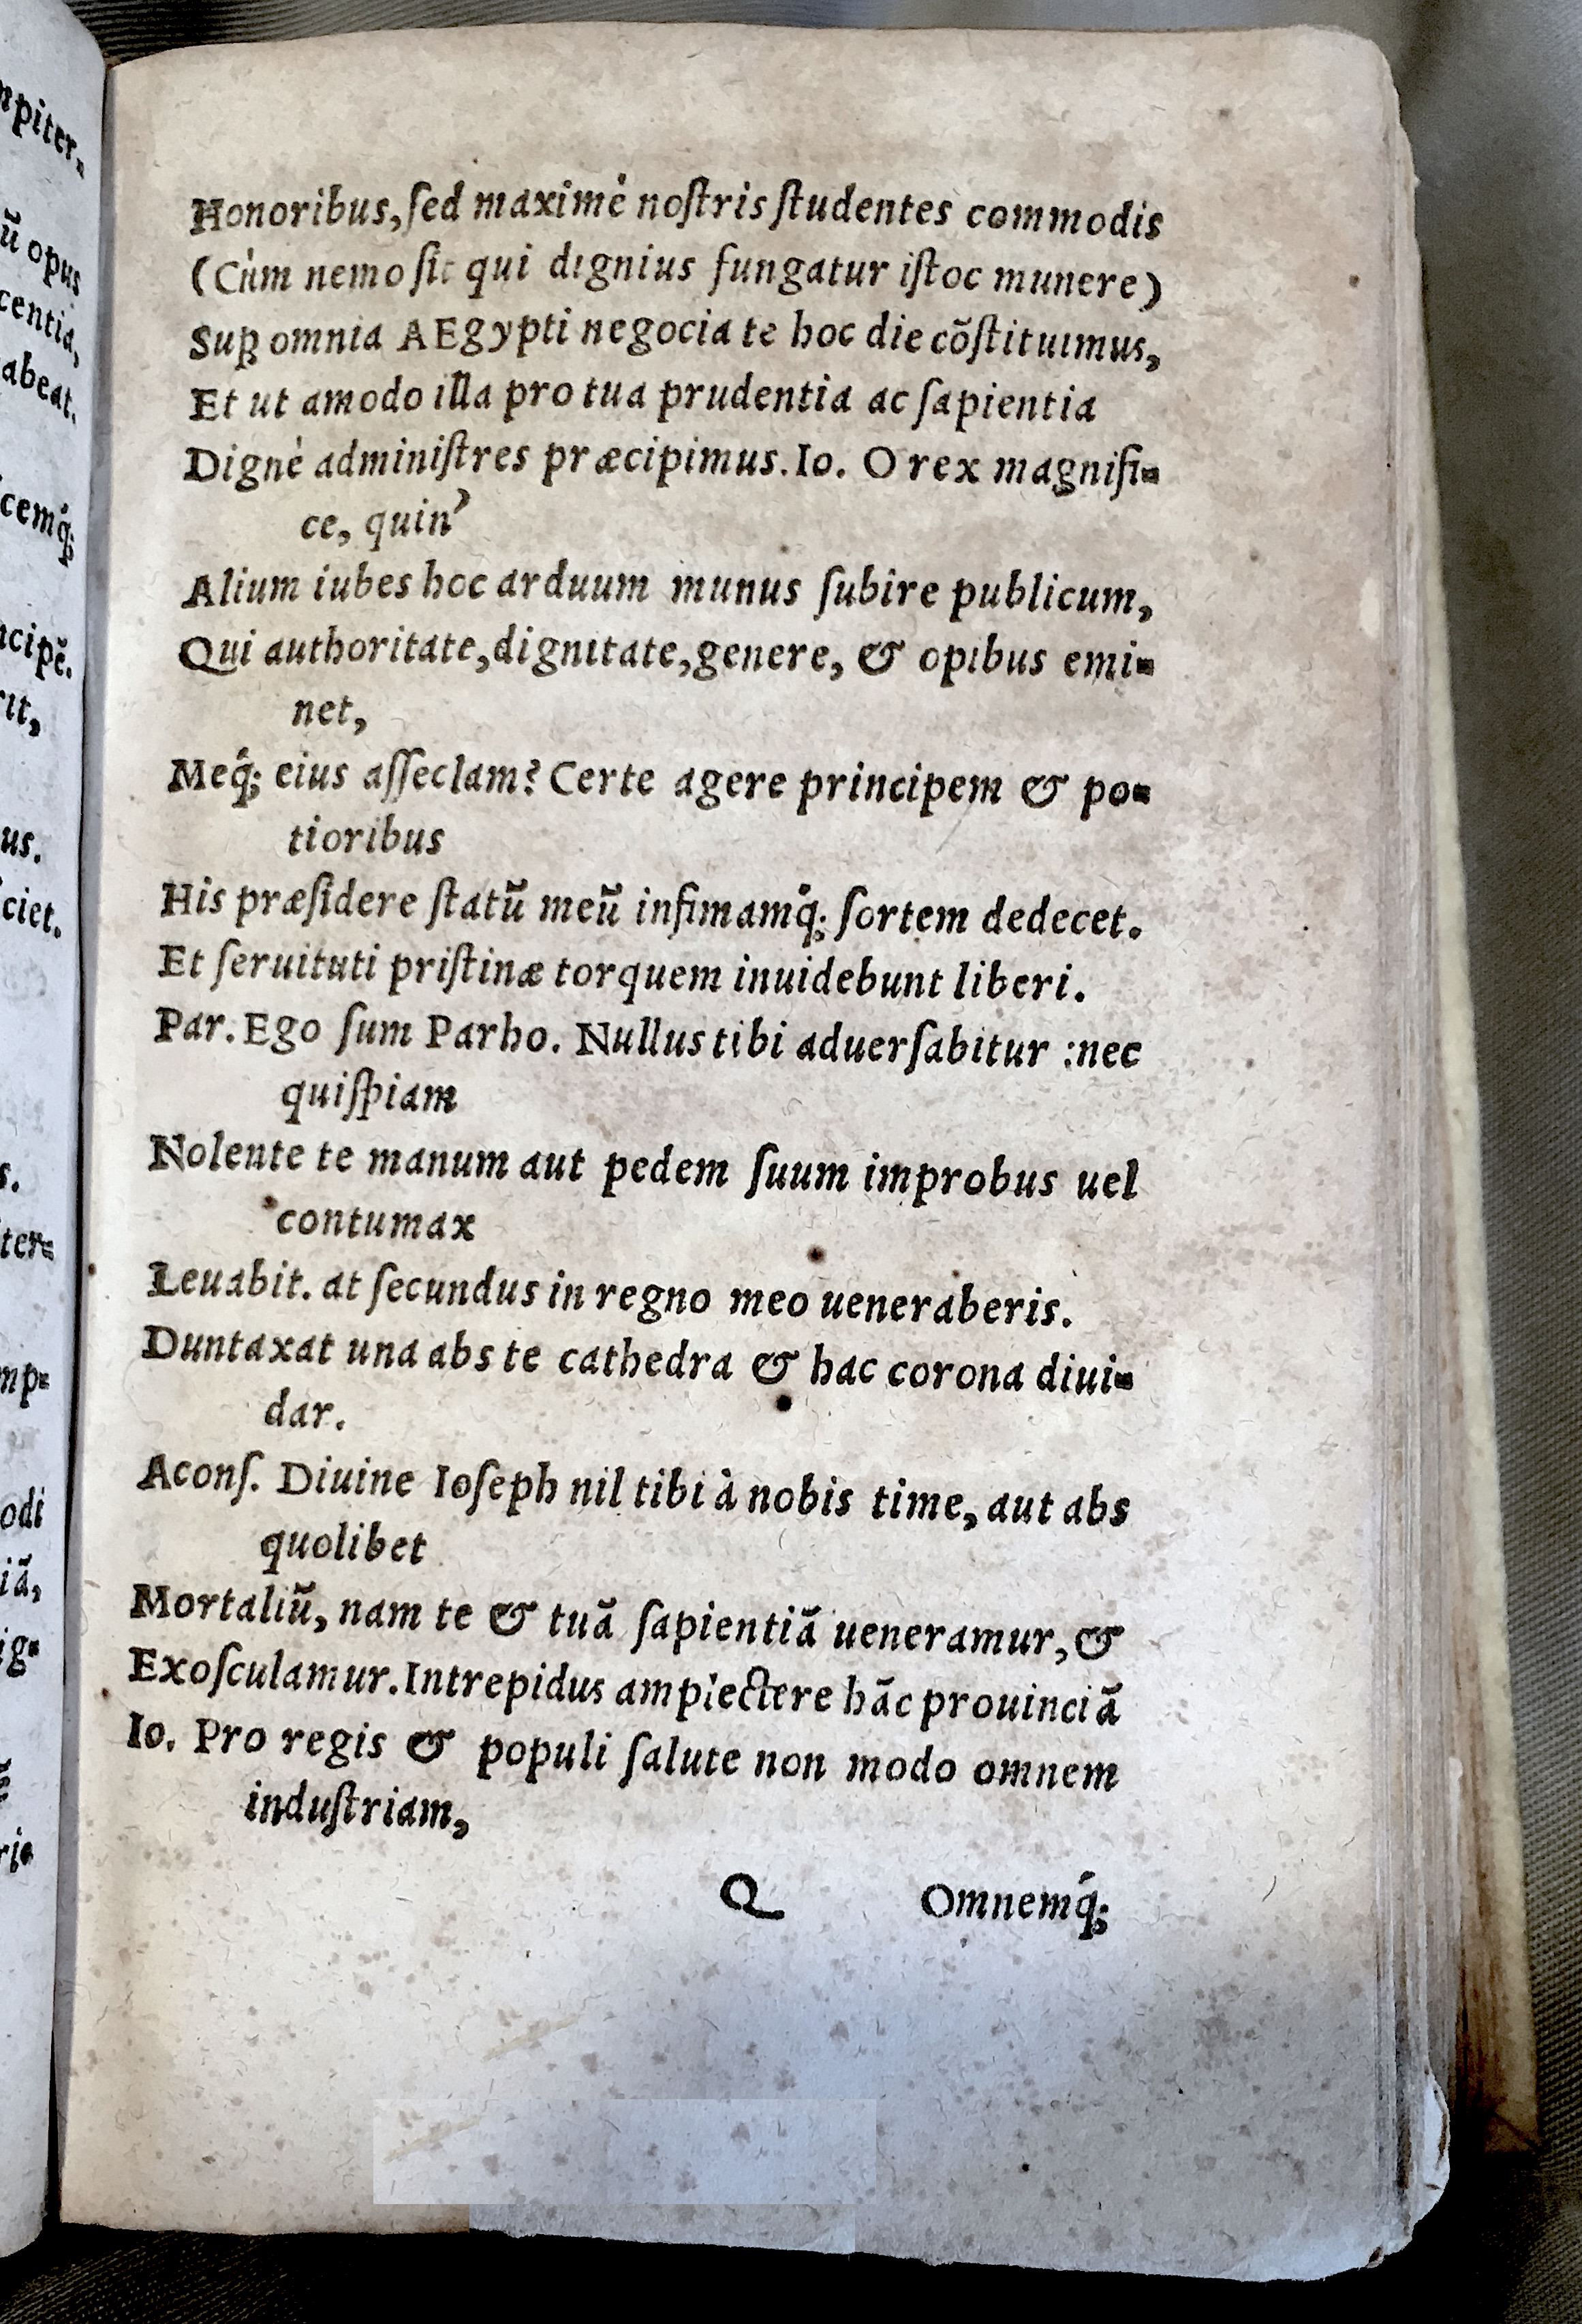 Honoribus, ſed maximè noſtris ſtudentes commodis
(Cùm nemo ſit qui dignius fungatur iſtoc munere)
Suꝑ omnia AEgypti negocia te hoc die cõſtituimus,
Et ut amodo illa pro tua prudentia ac ſapientia
Dignè adminiſtres præcipimus. Io. O rex magnifi-
ce, quin'
Alium iubes hoc arduum munus ſubire publicum,
Qui authoritate, dignitate, genere, & opibus emi-
net,
Meq́; eius aſſeclam? Certe agere principem & po-
tioribus
His præſidere ſtatũ meũ infimamq́; ſortem dedecet.
Et ſeruituti priſtinæ torquem inuidebunt liberi.
Par. Ego ſum Parho. Nullus tibi aduerſabitur : nec
quiſpiam
Nolente te manum aut pedem ſuum improbus uel
contumax
Leuabit. at ſecundus in regno meo ueneraberis.
Duntaxat una abs te cathedra & hac corona diui-
dar.
Aconſ. Diuine Ioſeph nil tibi à nobis time, aut abs
quolibet
Mortaliũ, nam te & tuã ſapientiã ueneramur, &
Exoſculamur. Intrepidus amplectere hãc prouinciã
Io. Pro regis & populi ſalute non modo omnem
induſtriam,
Q Omnemq́;